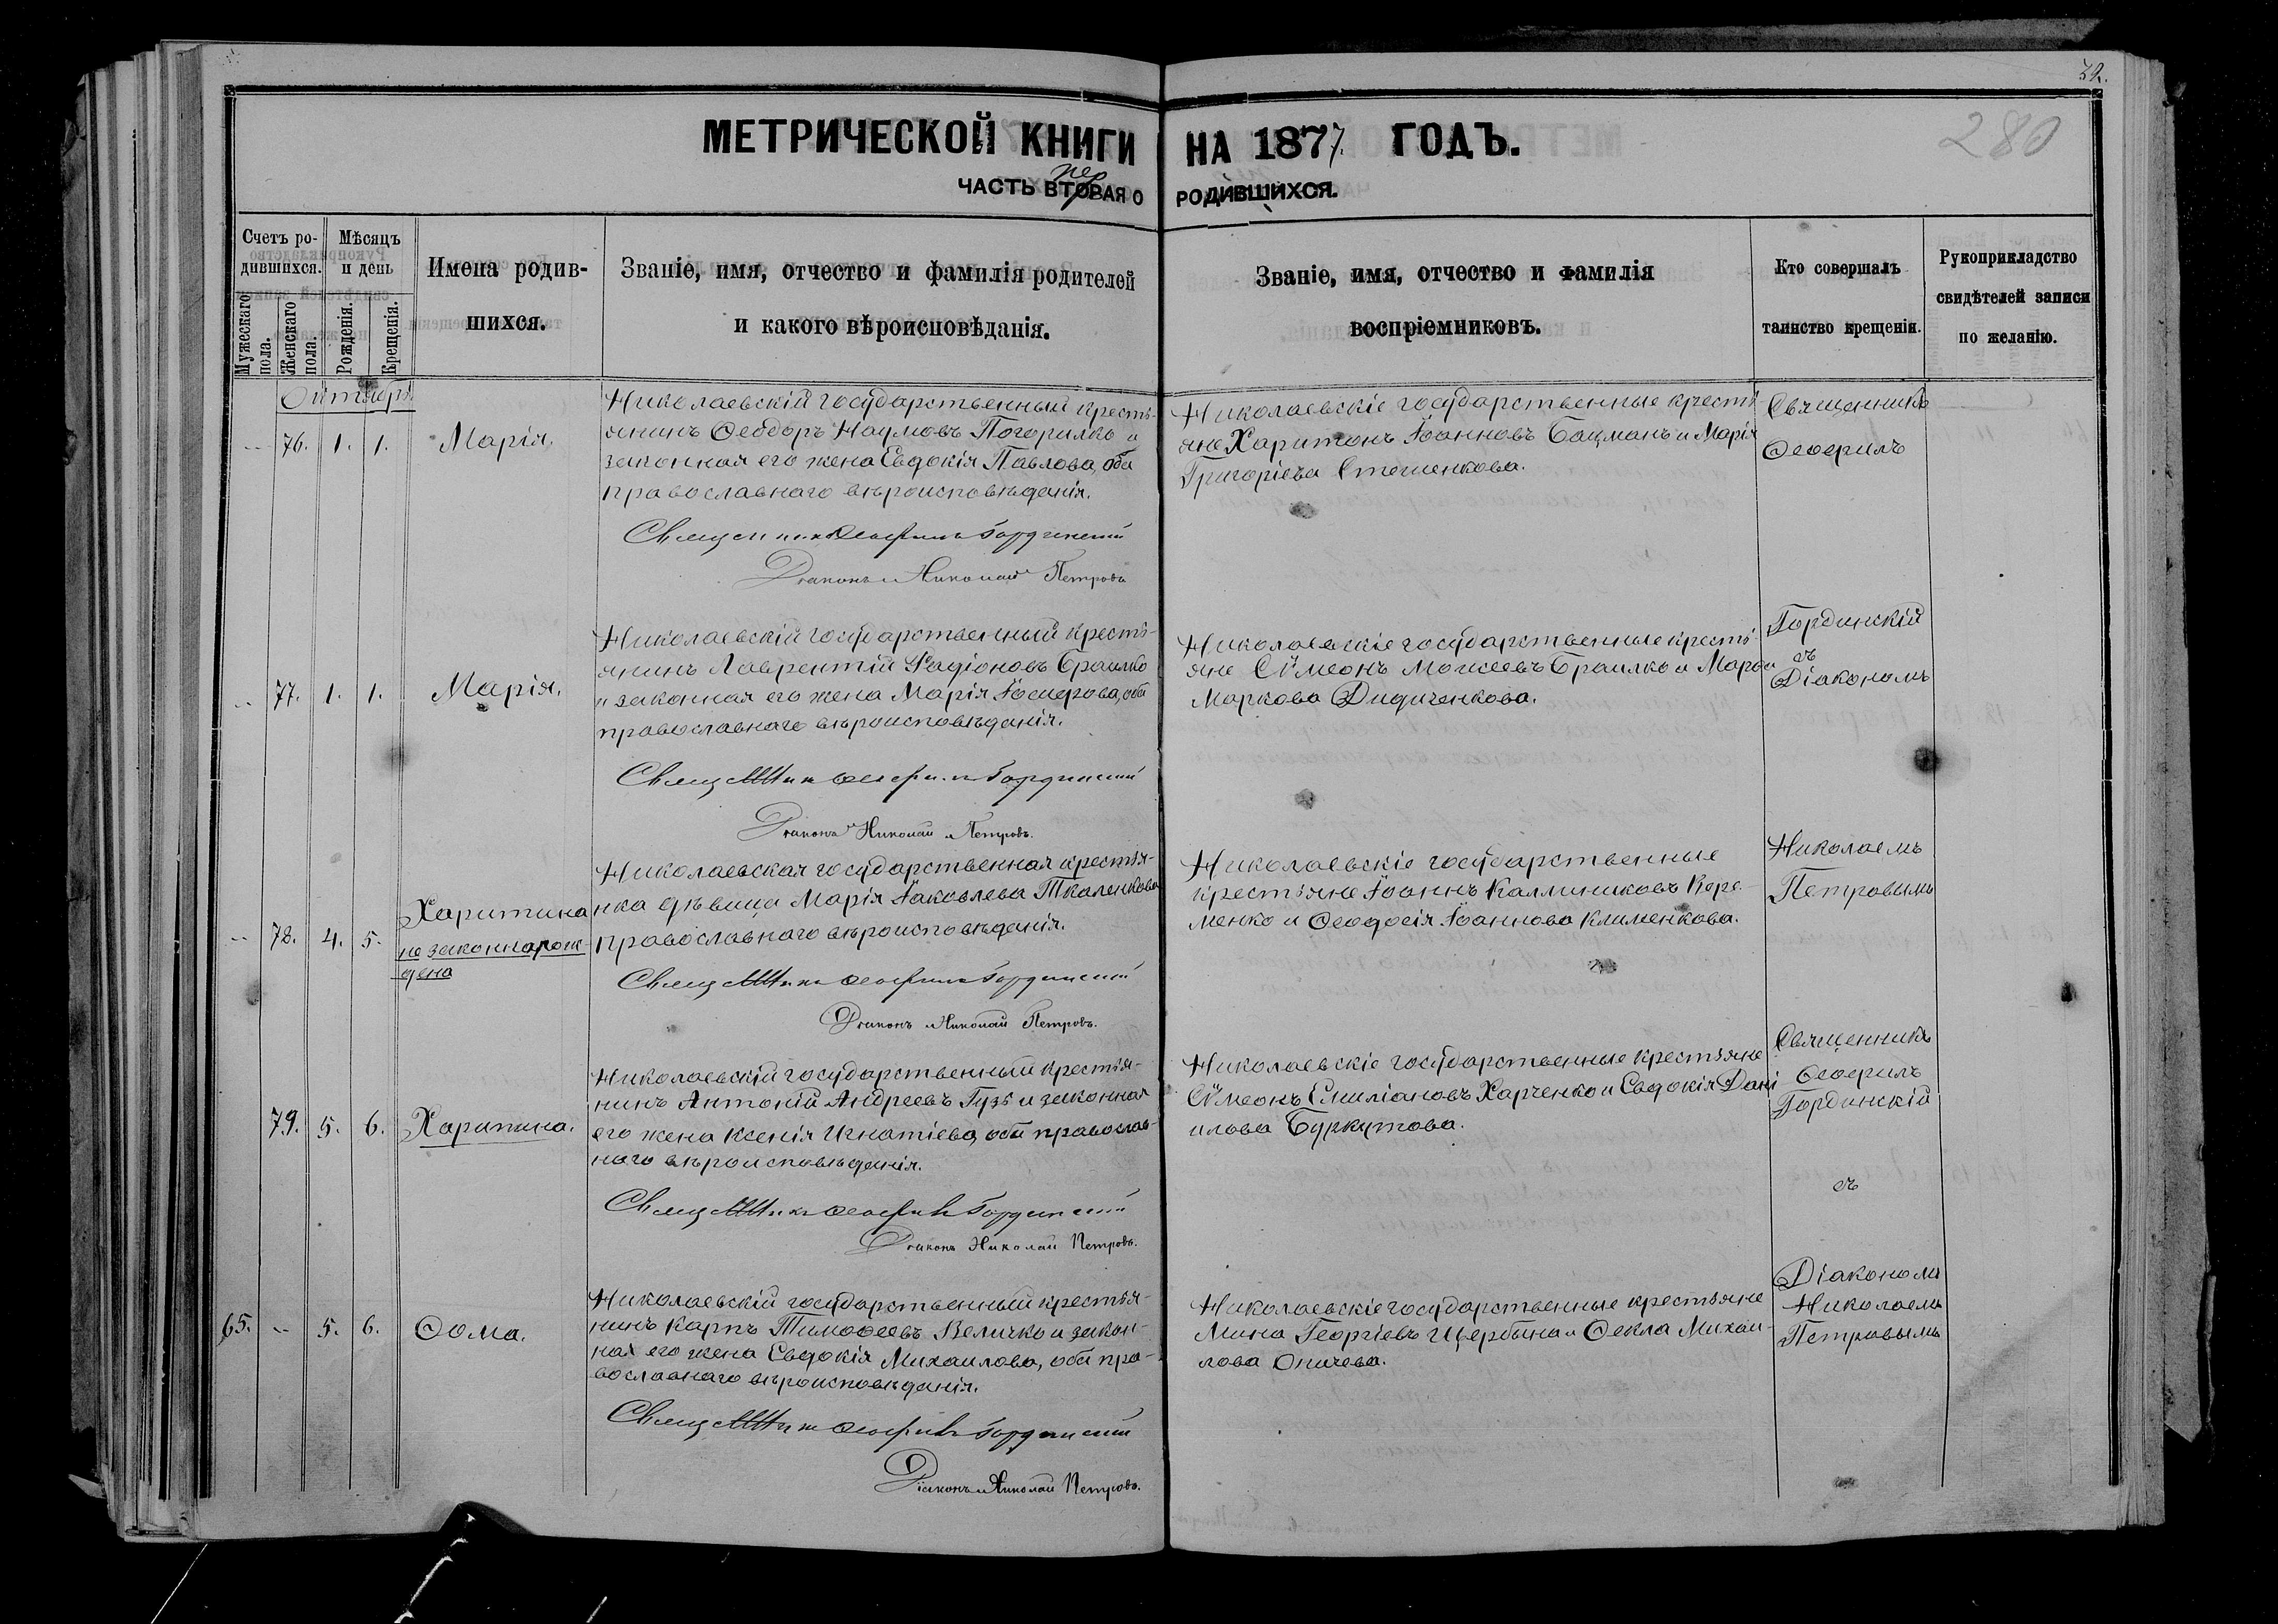 32.
280
МЕТРИЧЕСКОЙ КНИГИ НА 1877. ГОДЪ.
пер
ЧАСТЬ ВТОРАЯ О РОДИВШИХСЯ.
Счетъ ро-
дившихся.
Мужескаго пола.
Женскаго пола.
Мѣсяцъ
и день
Рожденія.
Крещенія.
Имена родив-
шихся.
Званіе, имя, отчество и фамилія родителей
и какого вѣроисповѣданія.
Званіе, имя, отчество и фамилія
воспріемниковъ.
Кто совершалъ
таинство крещенія.
Рукоприкладство
свидѣтелей записи
по желанію.
Октябрь.
-- 76. 1. 1. Марія.
Николаевскій государственный кресть-
янинъ Ѳеодоръ Наумовъ Погорилко и
законная его жена Евдокія Павлова, оба
православнаго вѣроисповѣданія.
Священникъ Ѳеофилъ Гординскій
Діаконъ Николай Петровъ
Николаевскіе государственные кресть
яне Харитонъ Іоанновъ Бацманъ и Марія
Григоріева Стешенкова.
Священникъ
Ѳеофилъ
-- 77. 1. 1. Марія.
Николаевскій государственный кресть-
янинъ Лаврентій Радіоновъ Браилко
и законная его жена Марія Іосифова, оба
православнаго вѣроисповѣданія.
Священникъ Ѳеофилъ Гординскій
Діаконъ Николай Петровъ.
Николаевскіе государственные кресть
яне Сѵмеонъ Моисеевъ Браилко и Марѳа
Маркова Дидиченкова.
Гординскій
съ
Діакономъ
-- 78. 4. 5. Харитина
не законнорож-
дена
Николаевская государственная крестья-
нка дѣвица Марія Іаковлева Ткаленкова
православнаго вѣроисповѣданія.
Священникъ Ѳеофилъ Гординскій
Діаконъ Николай Петровъ.
Николаевскіе государственные
крестьяне Іоаннъ Каллиниковъ Кере-
менко и Ѳеодосія Іоаннова Клименкова.
Николаемъ
Петровымъ
79. 5. 6. Харитина.
Николаевскій государственный крестья-
нинъ Антоній Андреевъ Гузь и законная
его жена Ксенія Игнатіева, оба православ-
наго вѣроисповѣданія.
Священникъ Ѳеофилъ Гординскій
Діаконъ Николай Петровъ.
Николаевскіе государственные крестьяне
Сѵмеонъ Емиліановъ Харченко и Евдокія Дані
илова Буркутова.
Священникъ
Ѳеофилъ
Гординскій
съ
65. -- 5. 6. Ѳома.
Николаевскій государственный крестья-
нинъ Карпъ Тимоѳеевъ Величко и закон-
ная его жена Евдокія Михаилова, оба пра-
вославнаго вѣроисповѣданія.
Священникъ Ѳеофилъ Гординскій
Діаконъ Николай Петровъ.
Николаевскіе государственные крестьяне
Мина Георгіевъ Щербина и Ѳекла Михаи-
лова Оничева.
Діакономъ
Николаемъ
Петровымъ